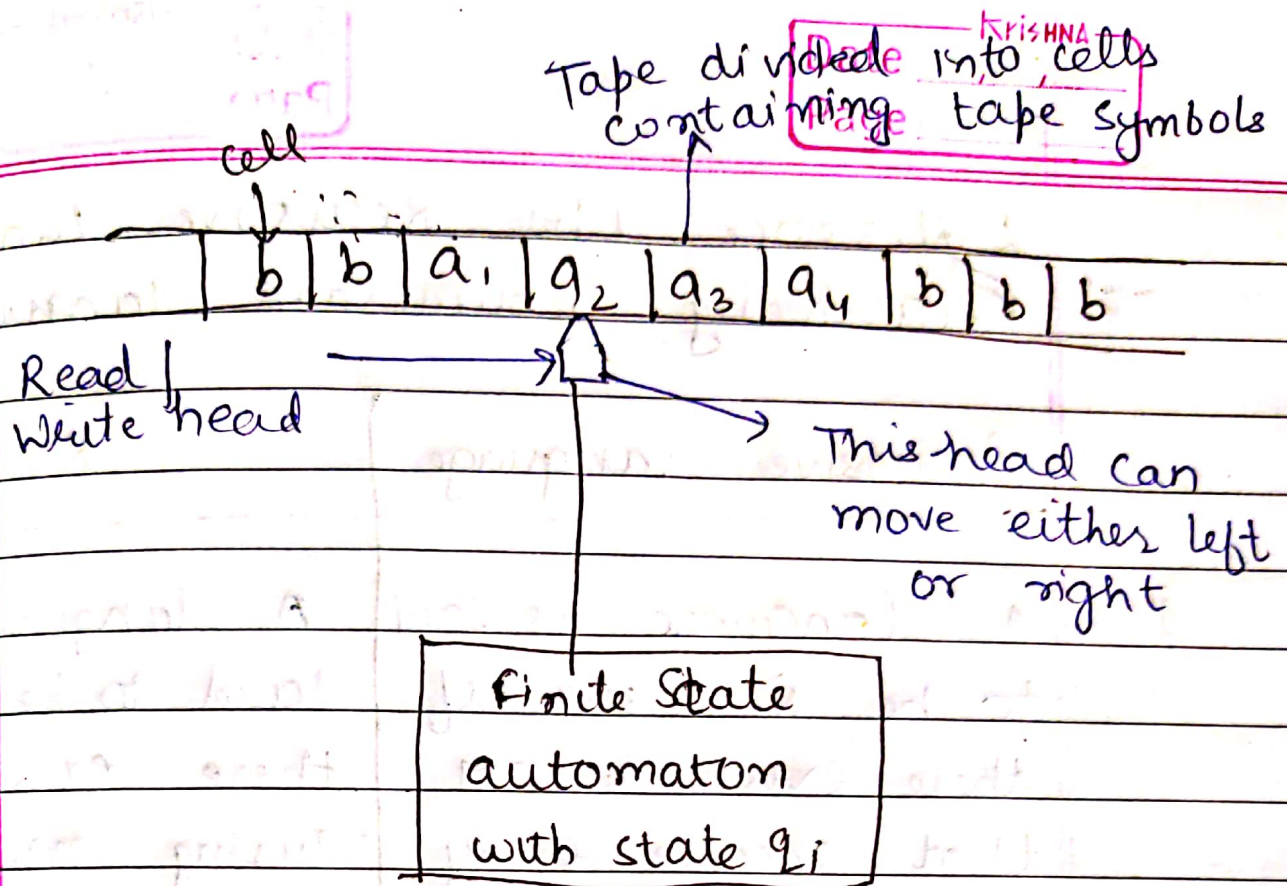 KRISHNA
Date
Page
Tape divided into cells
containing tape symbols
cell
b | b | a1 | a2 | a3 | a4 | b | b | b
Read /
Write head
This head can
move either left
or right
Finite State
automaton
with state qi